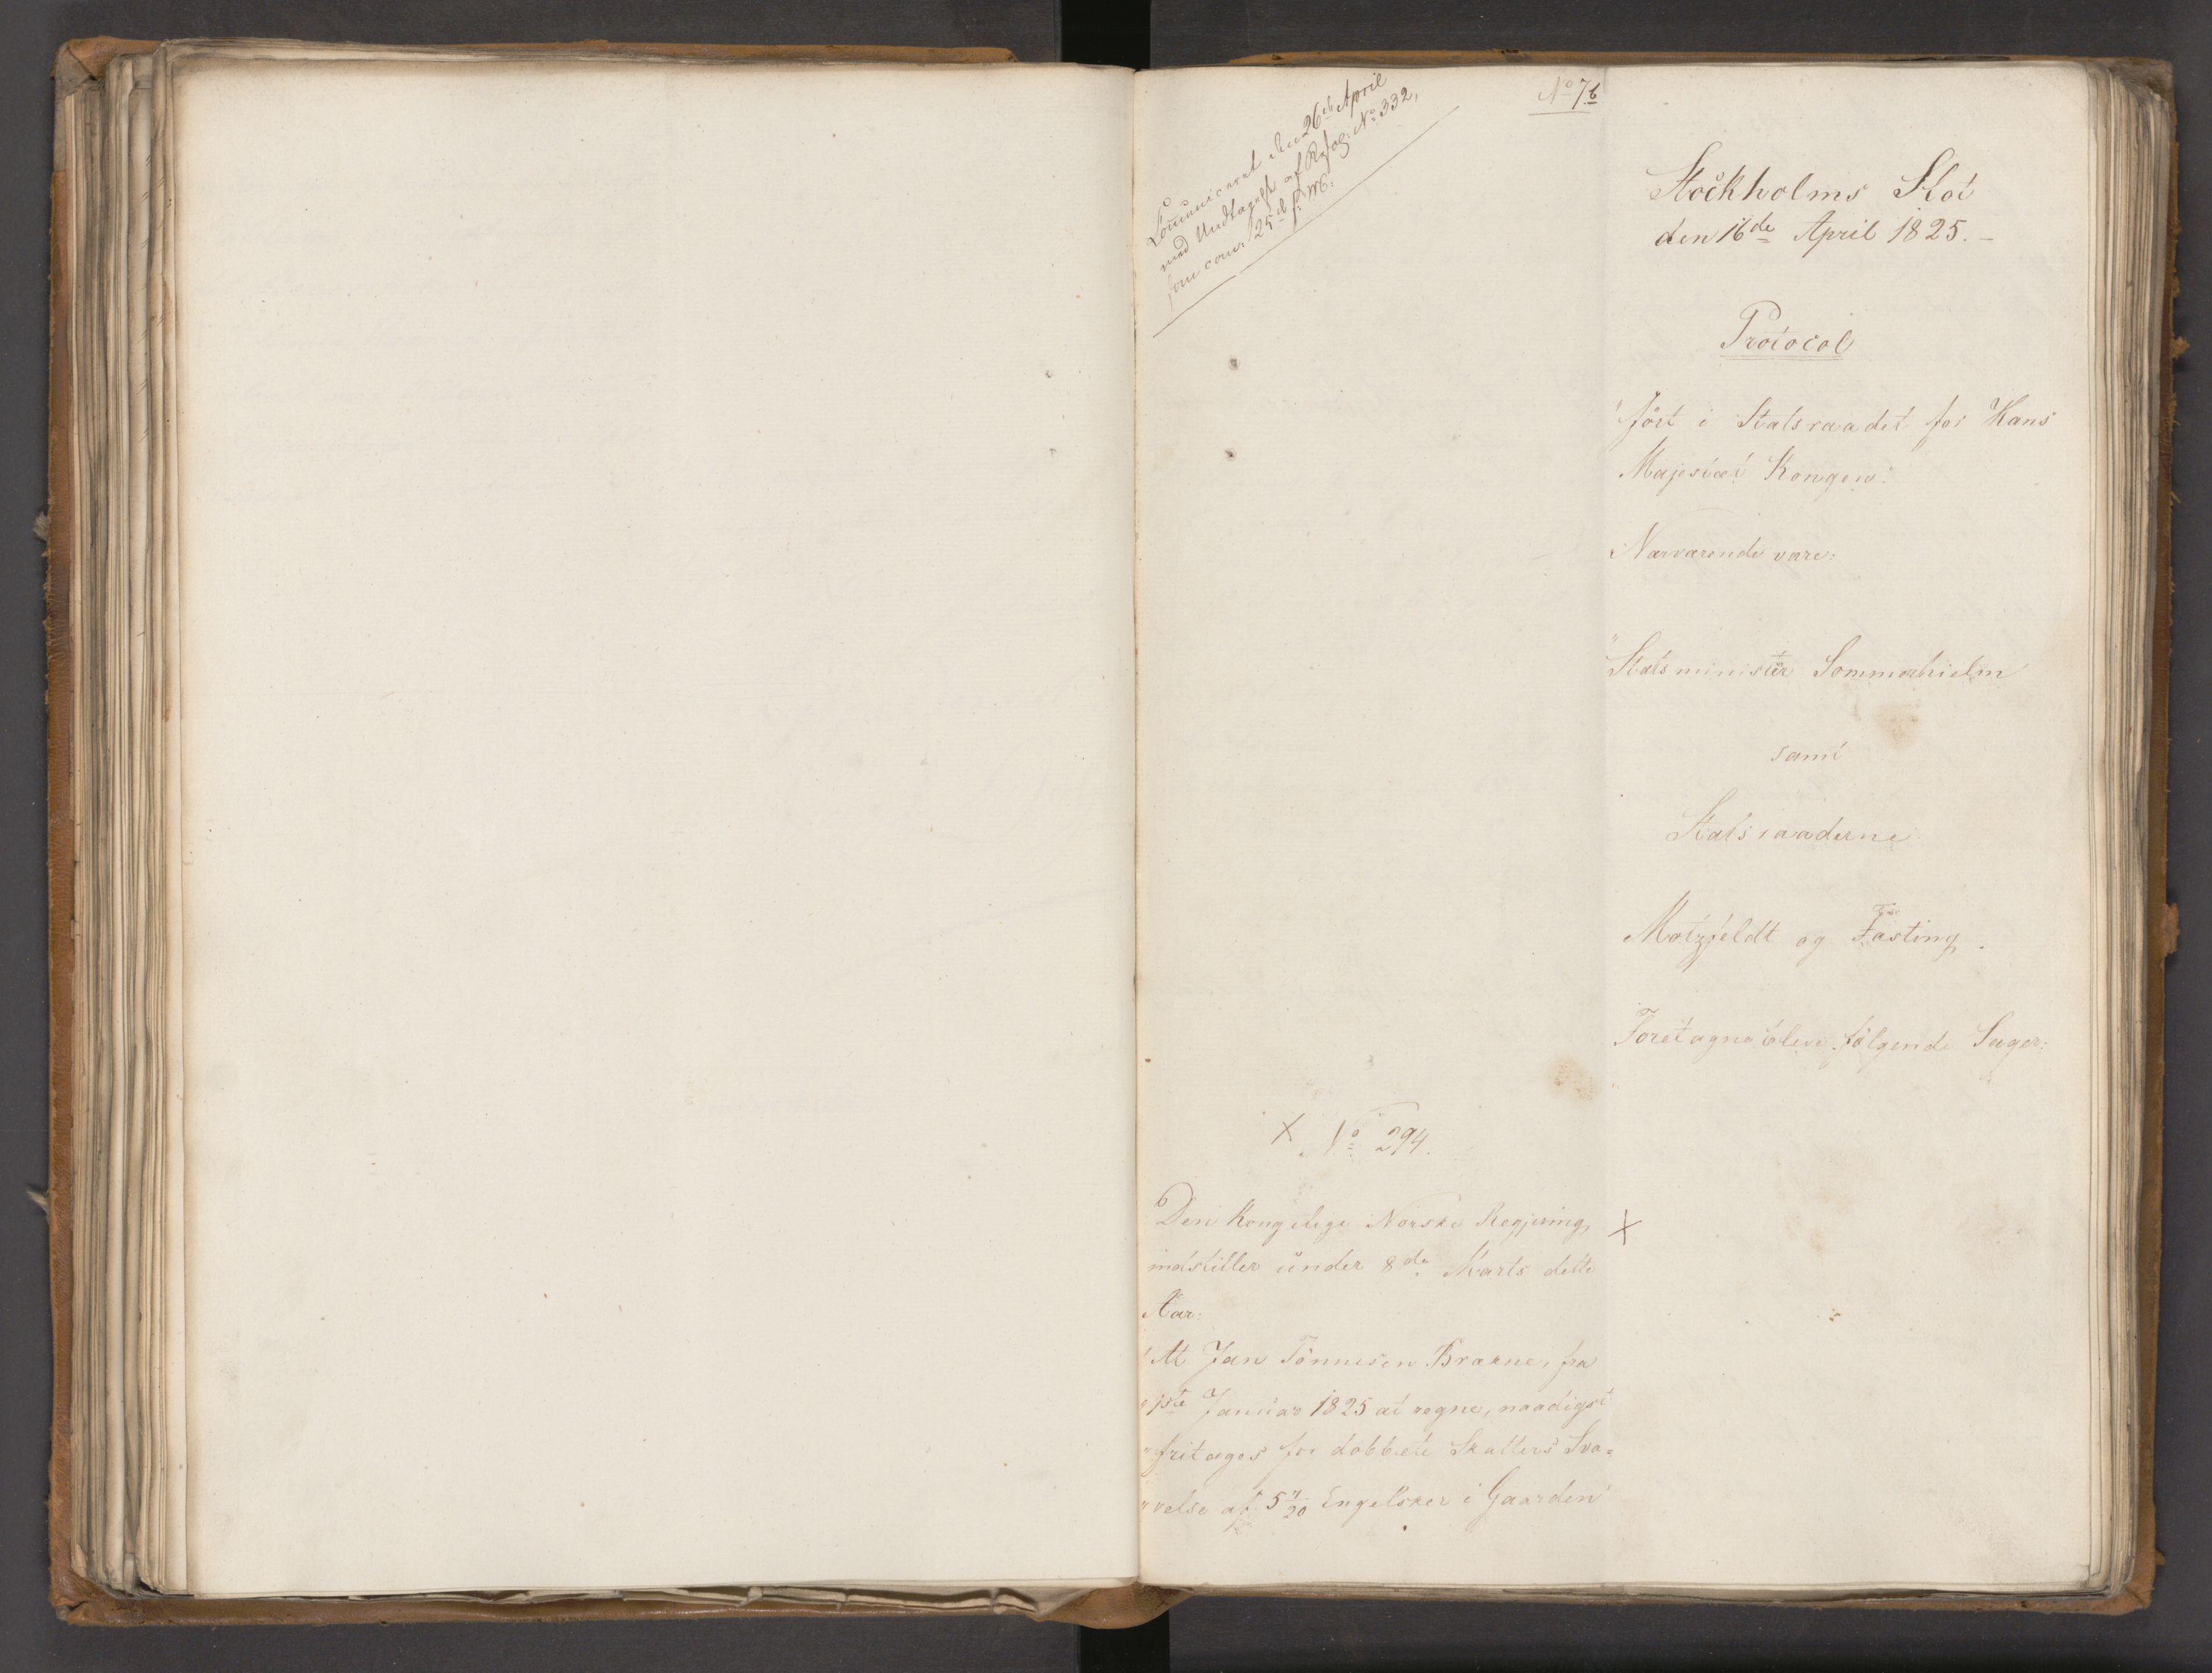 Communiceret den 26de April
med Undtagelse af Resol: No 332,
som com: 25de s. M:
No 7b
Stockholms Slot
den 16de April 1825.-
Protocol
ført i Statsraadet for Hans
Majestæt Kongen.
Nærværende vare:
Statsminister Sommerhielm
samt
Statsraaderne
Motzfeldt og Fasting.
Foretagne bleve følgende Sager:
X No 294.
Den Kongelige Norske Regjering, X
indstiller under 8de Marts dette
Aar:
"At Jan Tönnesen Braane, fra
"1ste Januar 1825 at regne, naadigst
"fritages for dobbelte Skatters Sva=
"relse af 5 7/20 Engelsker i Gaarden